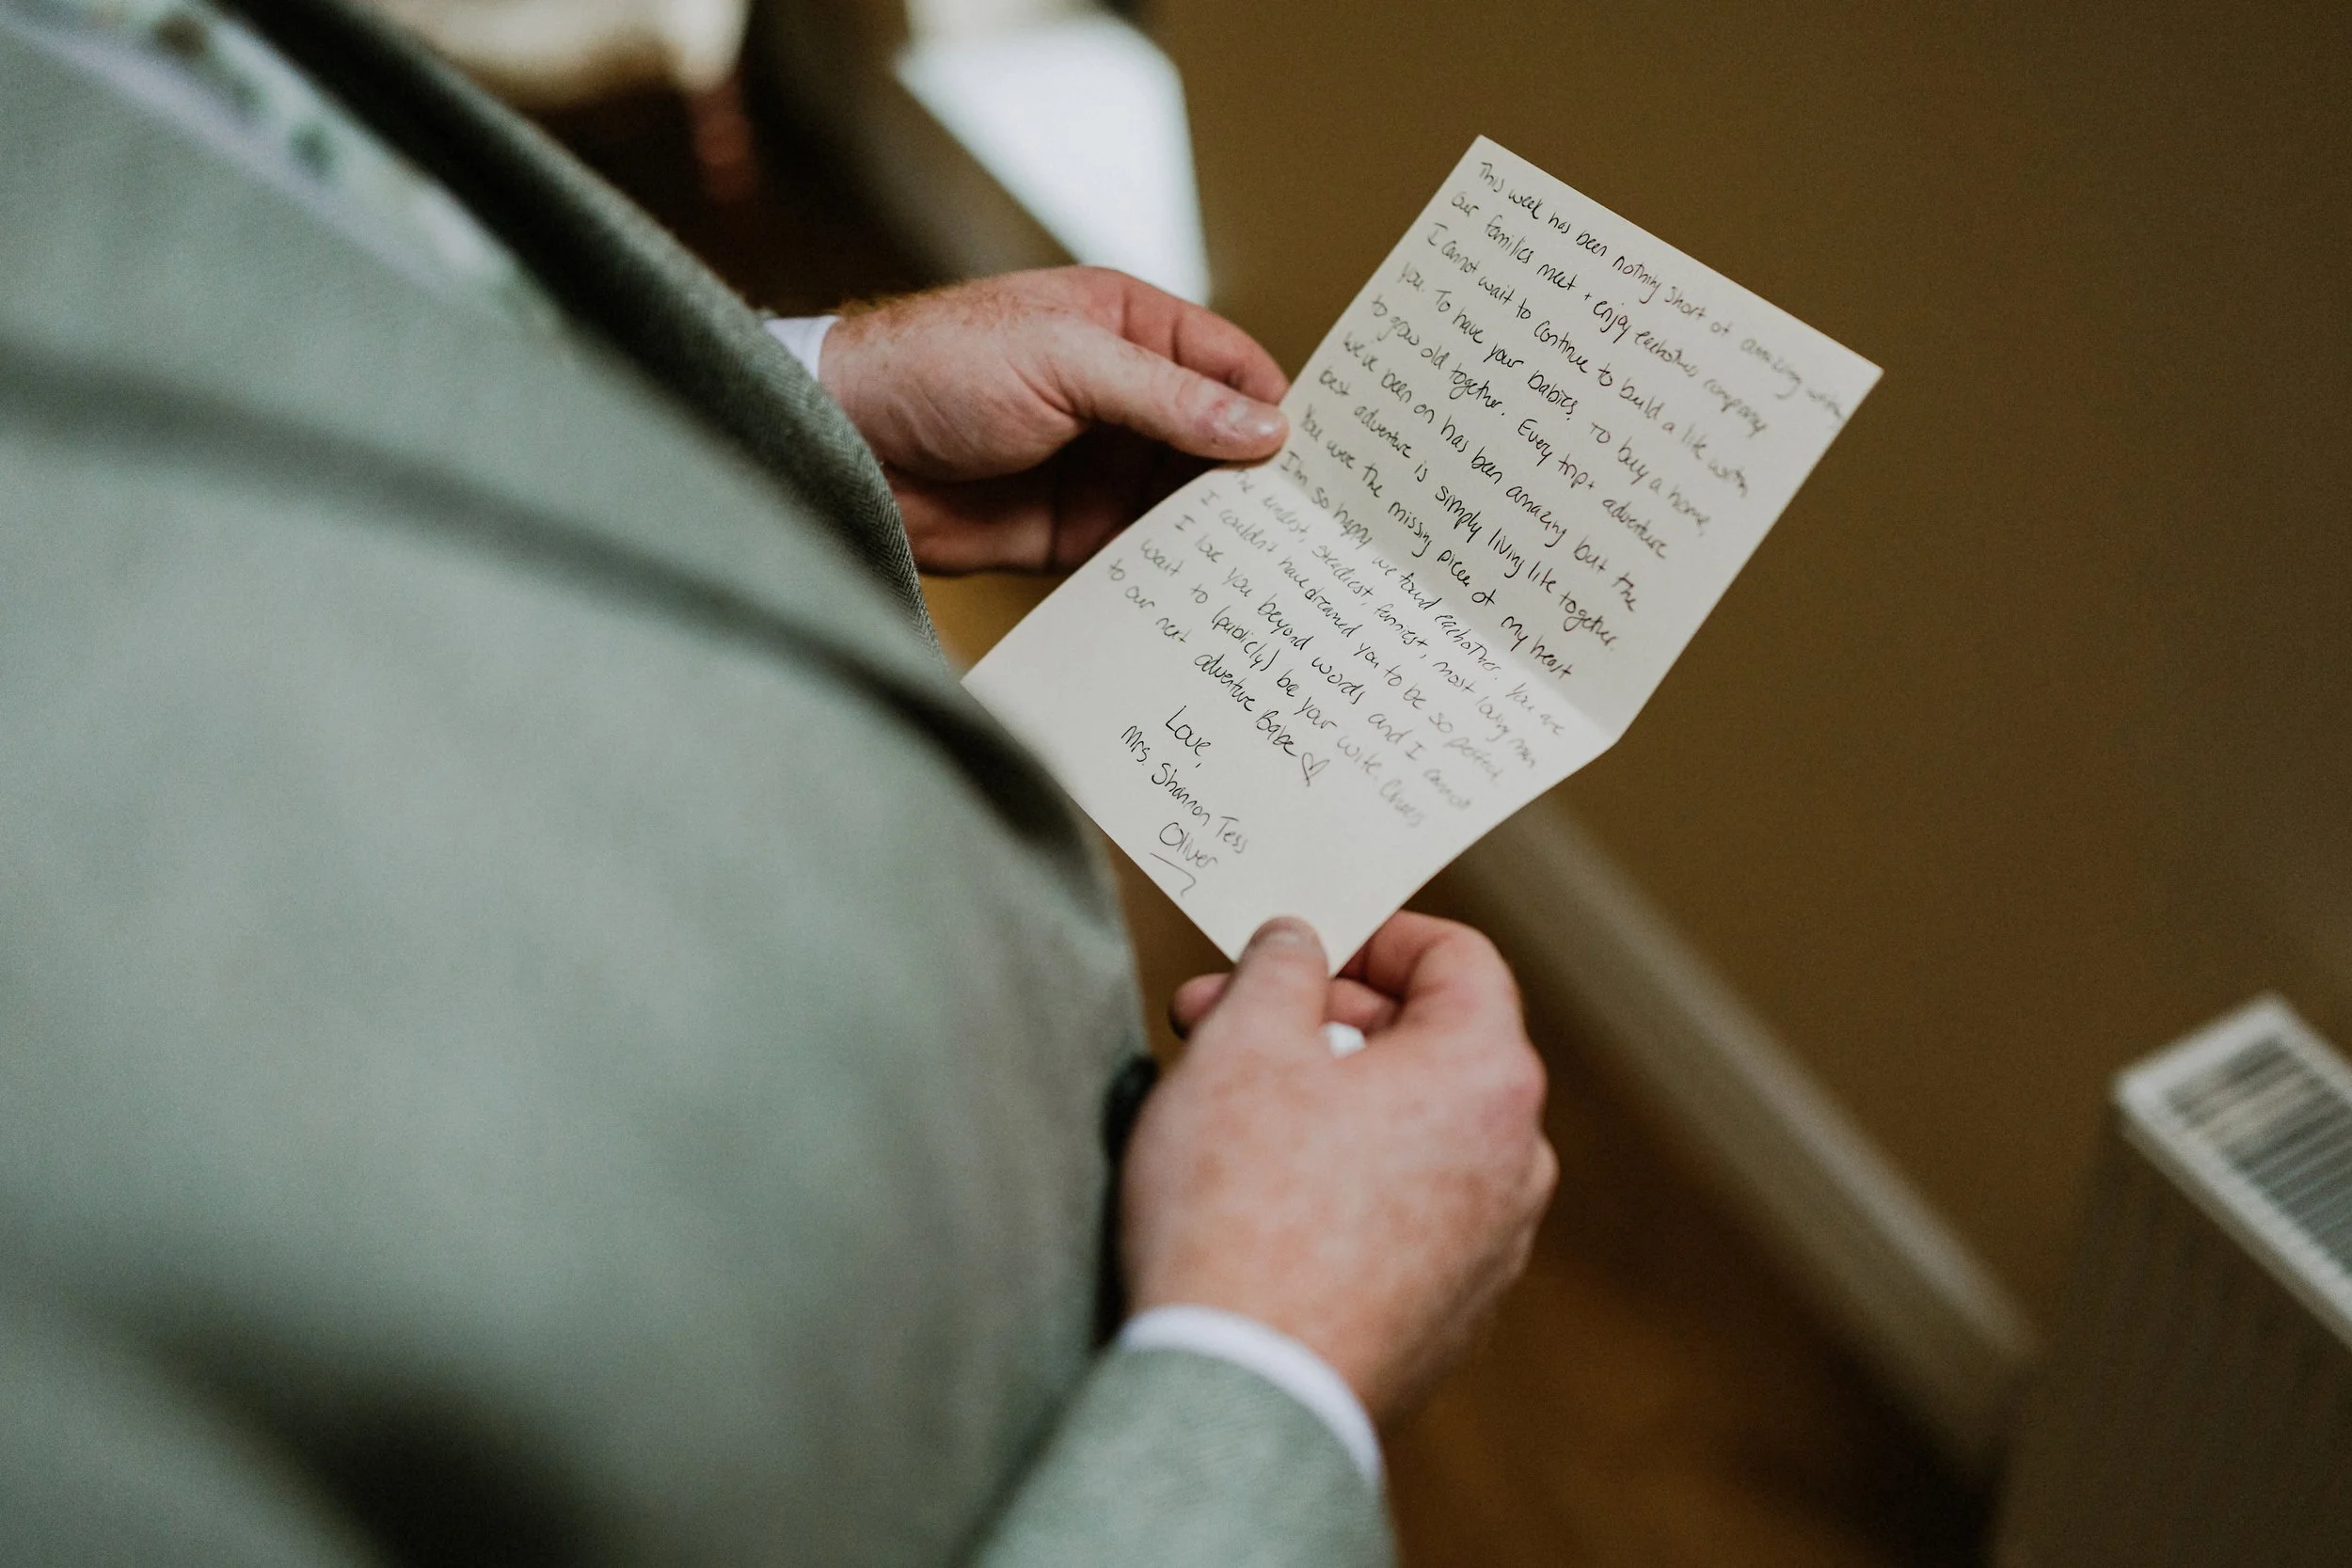 This week has been nothing short of amazing
our families meet + enjoy eachothers company
I cannot wait to continue to build a life with
you. To have your babies. To buy a home,
to grow old together. Every trip + adventure
we've been on has been amazing but the
best adventure is simply living life together.
You were the missing piece of my heart
I'm so happy we found eachother. You are
the kindest, steadiest, funniest, most loving man
I couldn't have dreamed you to be so perfect.
I love you beyond words and I cannot
wait to (publicly) be your wife. Cheers
to our next adventure Babe ♡
Love,
Mrs. Shannon Tess
Oliver